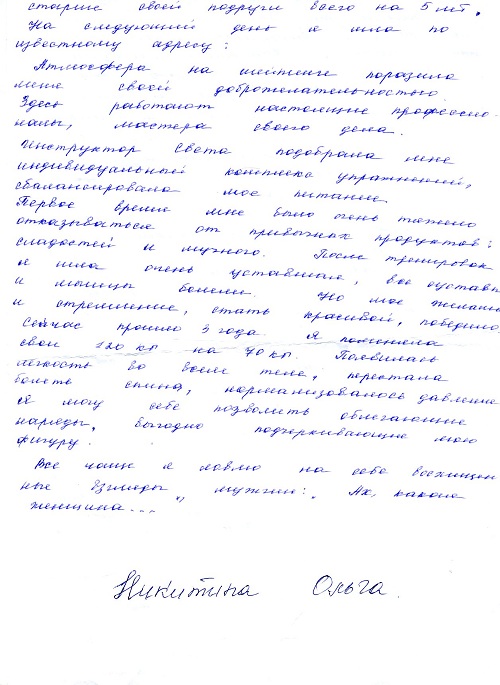 старше своей подруги всего на 5 лет.
На следующий день я шла по
известному адресу:
Атмосфера на шейпинге поразила
меня своей доброжелательностью.
Здесь работают настоящие професси-
налы, мастера своего дела.
Инструктор Света подобрала мне
индивидуальный комплекс упражнений,
сбалансировала мое питание
Первое время мне было очень тяжело
отказываться от привычных продуктов:
сладостей и мучного. После тренировок
я шла очень уставшая, все суставы
и мышцы болели. Но мое желание
и стремление, стать красивой, победило.
Сейчас прошло 3 года. Я поменяла
свои 120 кг на 70 кг. Появилась
легкость во всем теле, перестала
болеть спина, нормализовалось давление
Я могу себе позволить облегающие
наряды, выгодно подчеркивающие мою
фигуру.
Все чаще я ловлю на себе восхищен
ные взгляды мужчин: „Ах, какая
женщина...
Никитина Ольга.